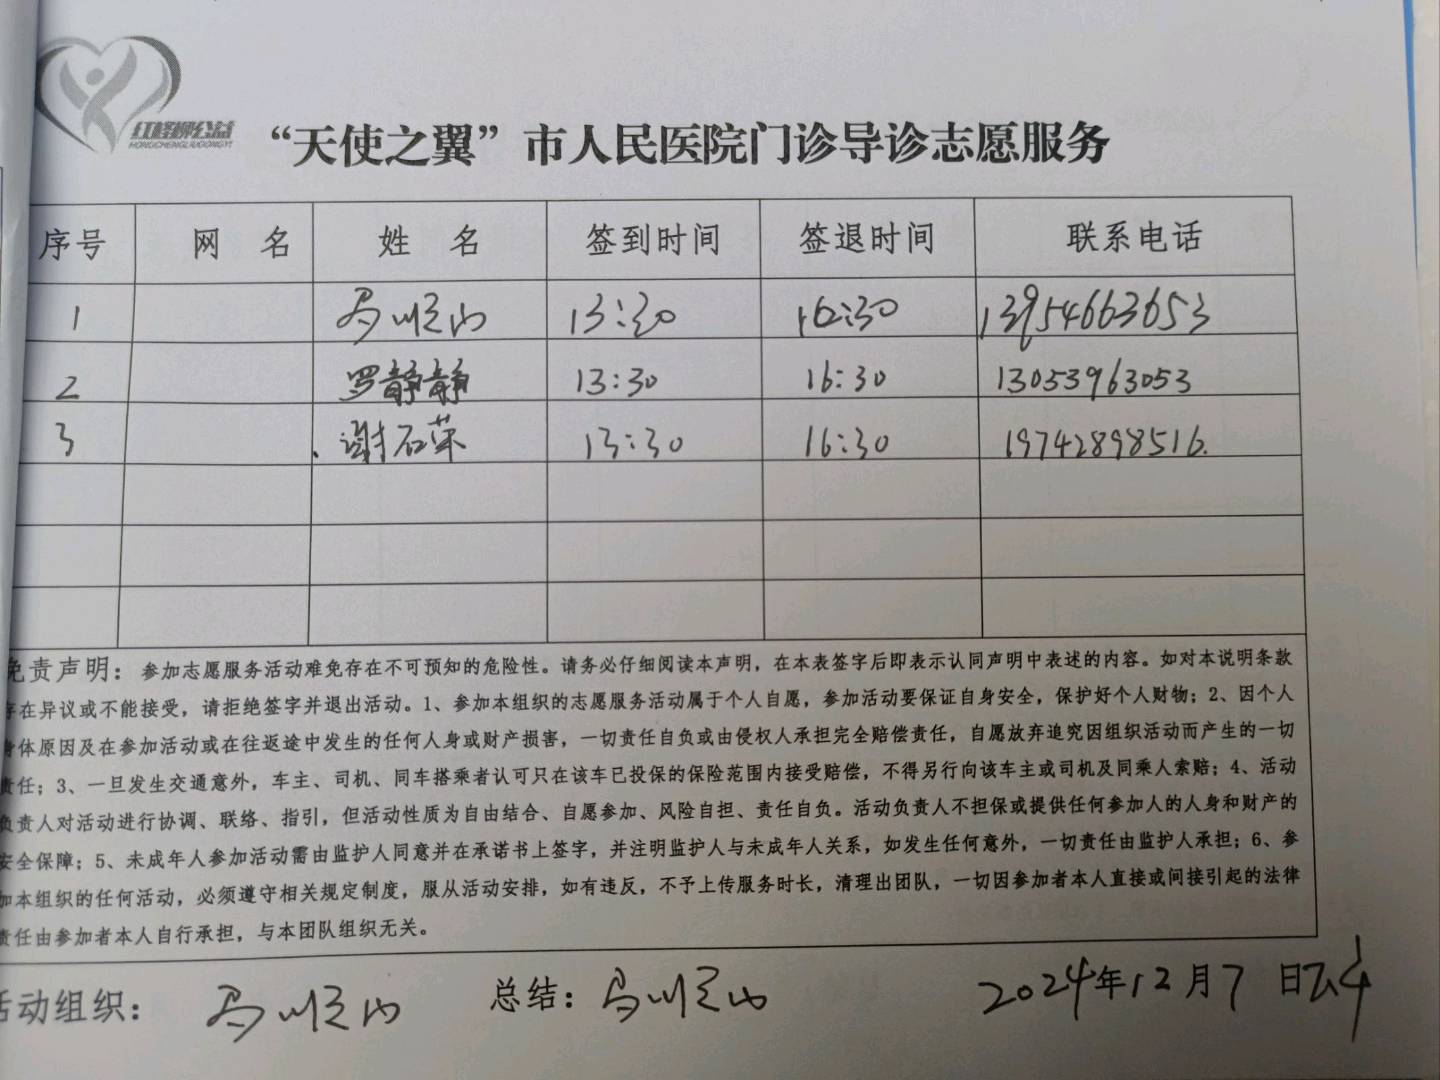 红柽柳公益
HONGCHENGLIUGONGYI
“天使之翼”市人民医院门诊导诊志愿服务
序号 网 名 姓 名 签到时间 签退时间 联系电话
1 13:30 16:30 13954663653
2 罗静静 13:30 16:30 13053963053
3 谢石荣 13:30 16:30 19742898516.
免责声明：参加志愿服务活动难免存在不可预知的危险性。请务必仔细阅读本声明，在本表签字后即表示认同声明中表述的内容。如对本说明条款
存在异议或不能接受，请拒绝签字并退出活动。1、参加本组织的志愿服务活动属于个人自愿，参加活动要保证自身安全，保护好个人财物；2、因个人
身体原因及在参加活动或在往返途中发生的任何人身或财产损害，一切责任自负或由侵权人承担完全赔偿责任，自愿放弃追究因组织活动而产生的一切
责任；3、一旦发生交通意外，车主、司机、同车搭乘者认可只在该车已投保的保险范围内接受赔偿，不得另行向该车主或司机及同乘人索赔；4、活动
负责人对活动进行协调、联络、指引，但活动性质为自由结合、自愿参加、风险自担、责任自负。活动负责人不担保或提供任何参加人的人身和财产的
安全保障；5、未成年人参加活动需由监护人同意并在承诺书上签字，并注明监护人与未成年人关系，如发生任何意外，一切责任由监护人承担；6、参
加本组织的任何活动，必须遵守相关规定制度，服从活动安排，如有违反，不予上传服务时长，清理出团队，一切因参加者本人直接或间接引起的法律
责任由参加者本人自行承担，与本团队组织无关。
活动组织： 总结： 2024年12月7日